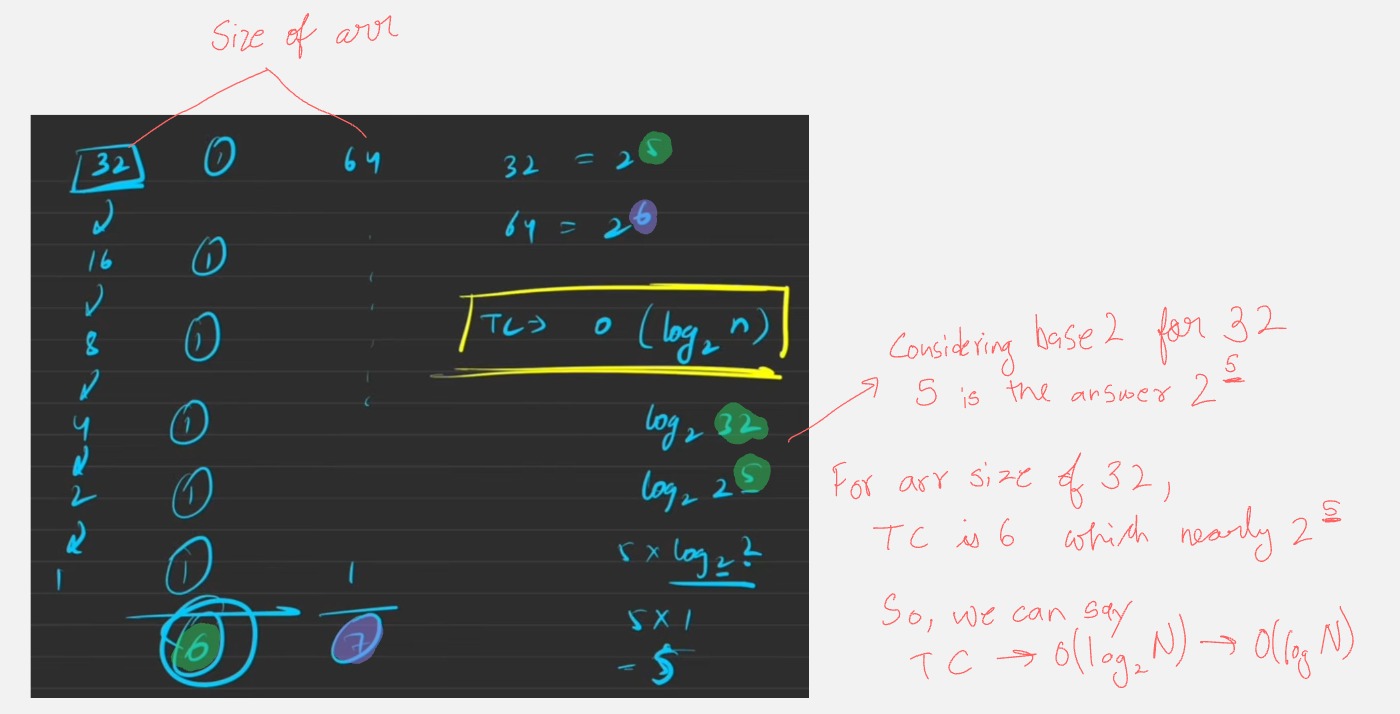 Size of arr
32 ① 64
16 ①
8 ①
4 ①
2 ①
1 ① 1
6 7
32 = 2⁵
64 = 2⁶
TC → O (log₂ n)
log₂ 32
log₂ 2⁵
5 × log₂ 2
5 × 1
= 5
Considering base 2 for 32
5 is the answer 2⁵
For arr size of 32,
TC is 6 which nearly 2⁵
So, we can say
TC → O(log₂ N) → O(log N)